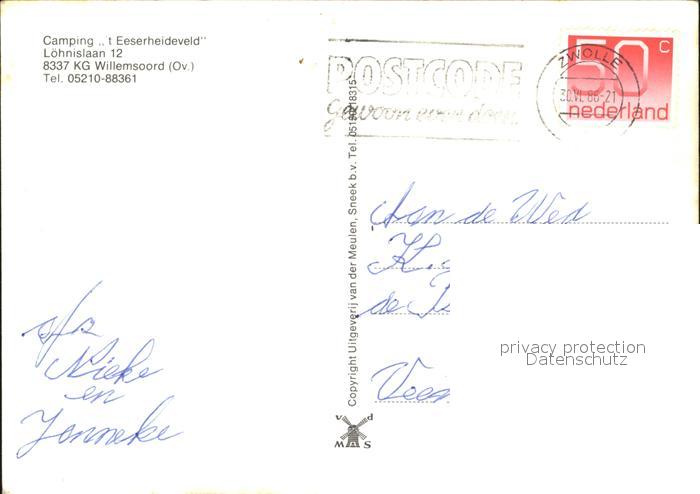 Camping ,,'t Eeserheideveld''
Löhnislaan 12
8337 KG Willemsoord (Ov.)
Tel. 05210-88361
POSTCODE
gewoon even doen
ZWOLLE
30.VI.86-21
50 C
nederland
Copyright Uitgeverij van der Meulen, Sneek b.v. Tel.
Aan de Wed
de
privacy protection
Datenschutz
Nieke
en
Janneke
v d
M S